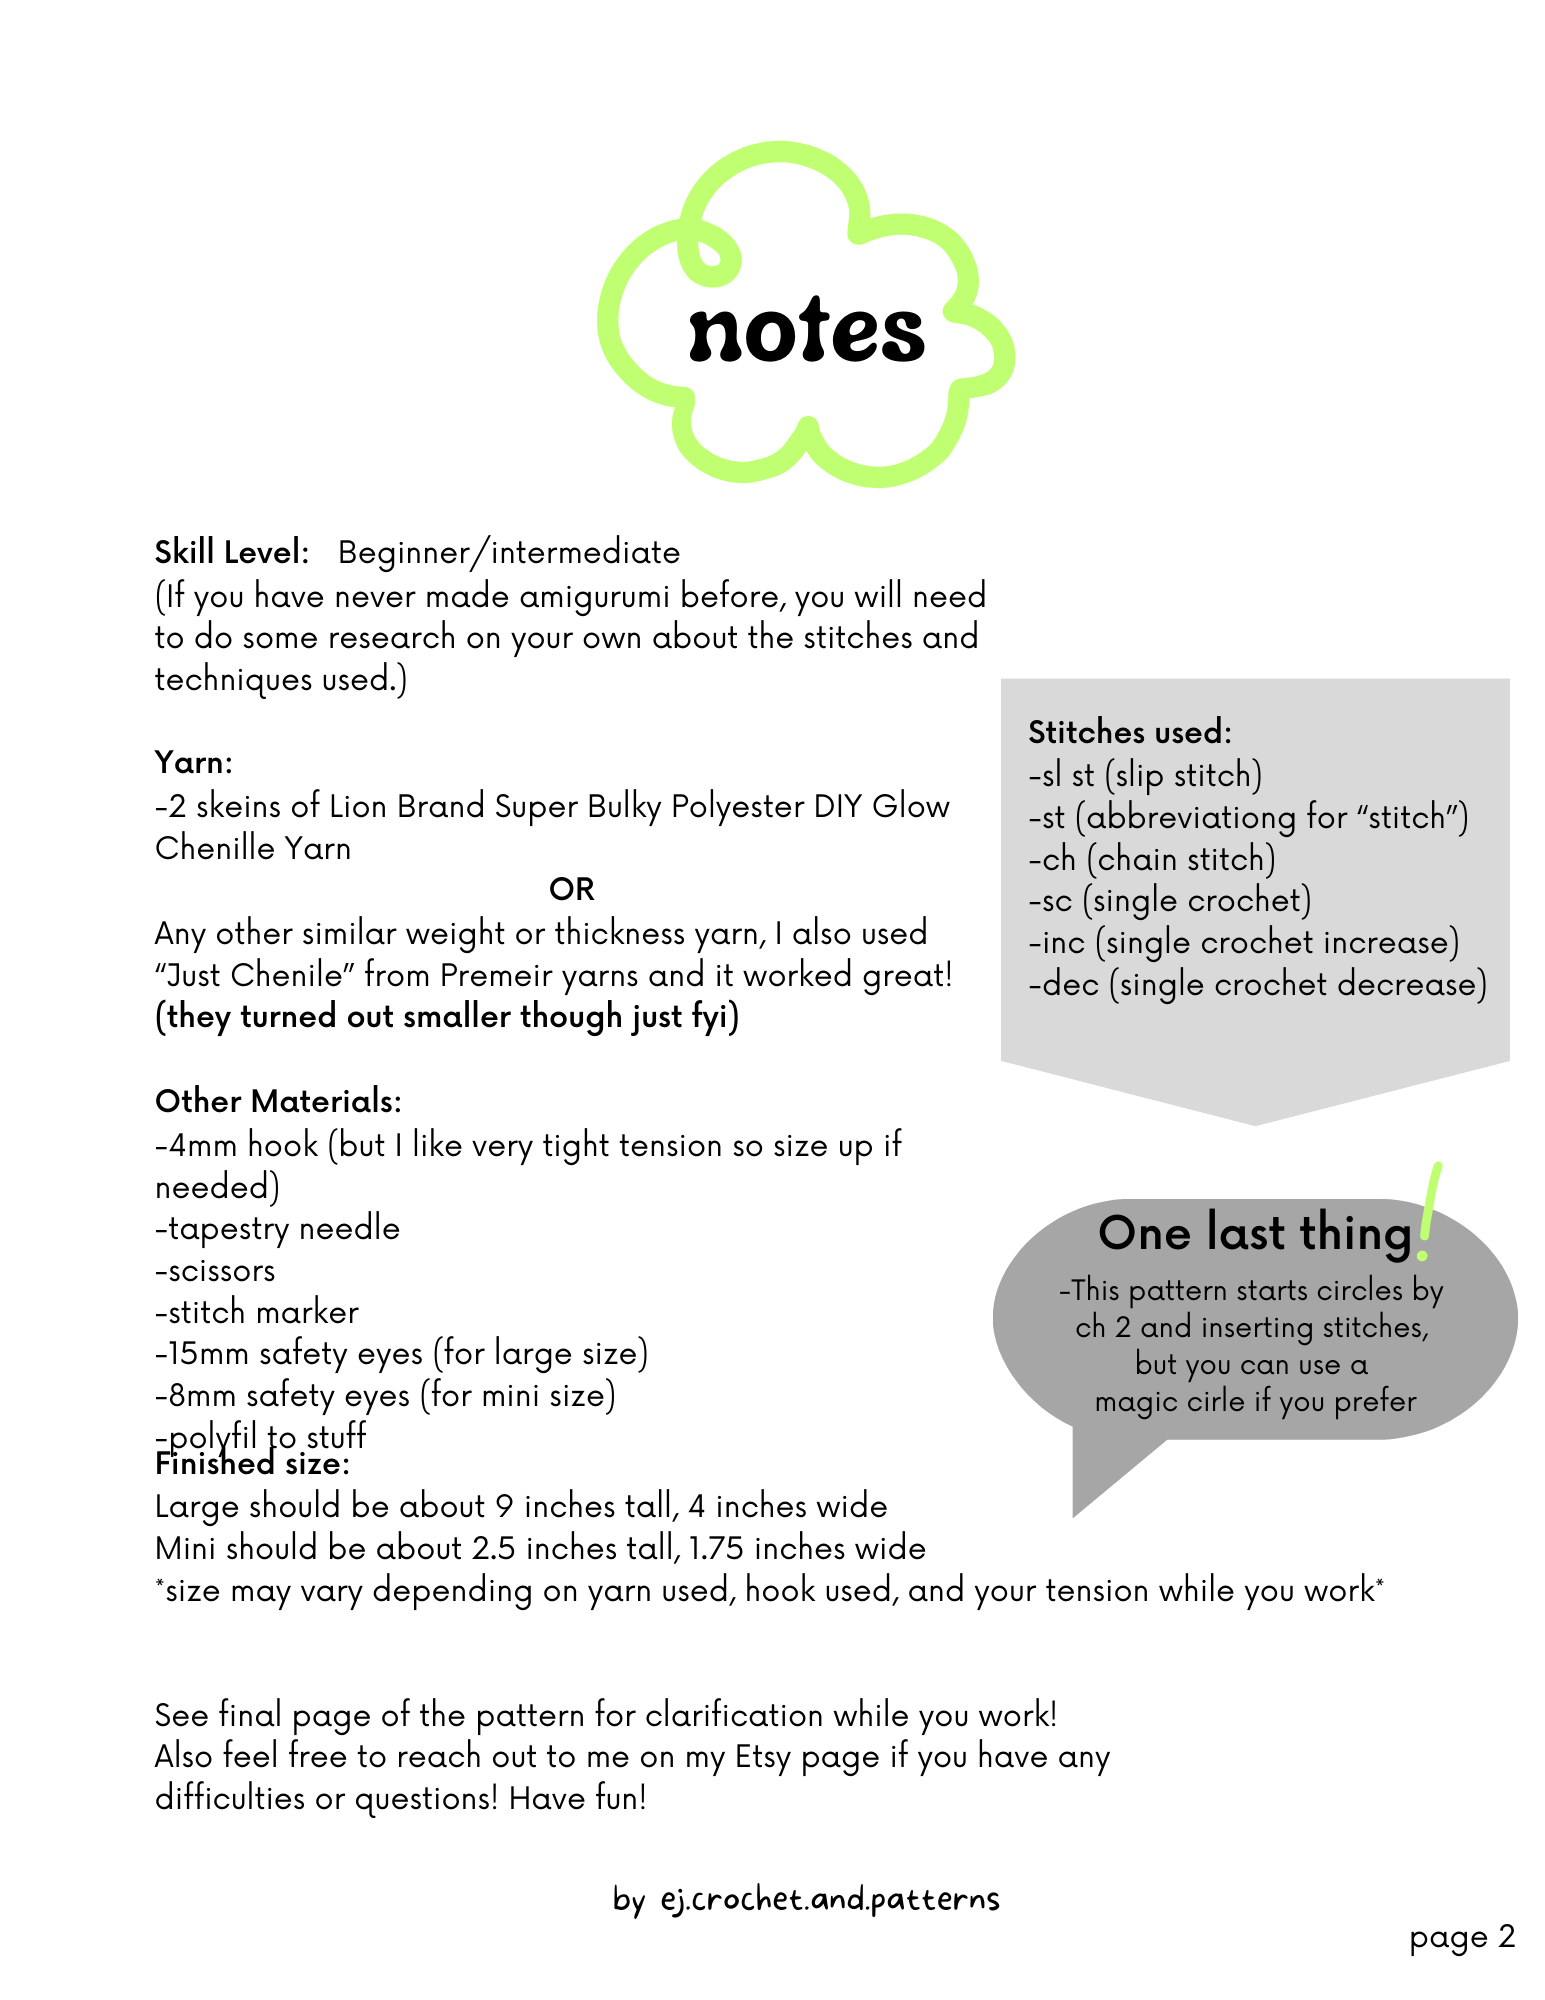 notes
Skill Level: Beginner/intermediate
(If you have never made amigurumi before, you will need
to do some research on your own about the stitches and
techniques used.)
Yarn:
-2 skeins of Lion Brand Super Bulky Polyester DIY Glow
Chenille Yarn
OR
Any other similar weight or thickness yarn, I also used
“Just Chenile” from Premeir yarns and it worked great!
(they turned out smaller though just fyi)
Other Materials:
-4mm hook (but I like very tight tension so size up if
needed)
-tapestry needle
-scissors
-stitch marker
-15mm safety eyes (for large size)
-8mm safety eyes (for mini size)
-polyfil to stuff
Finished size:
Large should be about 9 inches tall, 4 inches wide
Mini should be about 2.5 inches tall, 1.75 inches wide
*size may vary depending on yarn used, hook used, and your tension while you work*
Stitches used:
-sl st (slip stitch)
-st (abbreviationg for “stitch”)
-ch (chain stitch)
-sc (single crochet)
-inc (single crochet increase)
-dec (single crochet decrease)
One last thing!
-This pattern starts circles by
ch 2 and inserting stitches,
but you can use a
magic cirle if you prefer
See final page of the pattern for clarification while you work!
Also feel free to reach out to me on my Etsy page if you have any
difficulties or questions! Have fun!
by ej.crochet.and.patterns
page 2